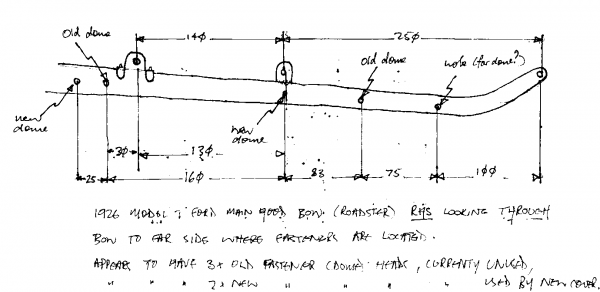 14φ 25φ
old dome
old dome
hole (for dome?)
new dome
new dome
3φ 13φ
25 16φ 83 75 1φφ
1926 MODEL T FORD MAIN HOOD BOW (ROADSTER) RHS LOOKING THROUGH
BOW TO FAR SIDE WHERE FASTENERS ARE LOCATED.
APPEARS TO HAVE 3x OLD FASTENER (DOME) HEADS, CURRENTLY UNUSED,
" " " 2x NEW " " " USED BY NEW COVER.